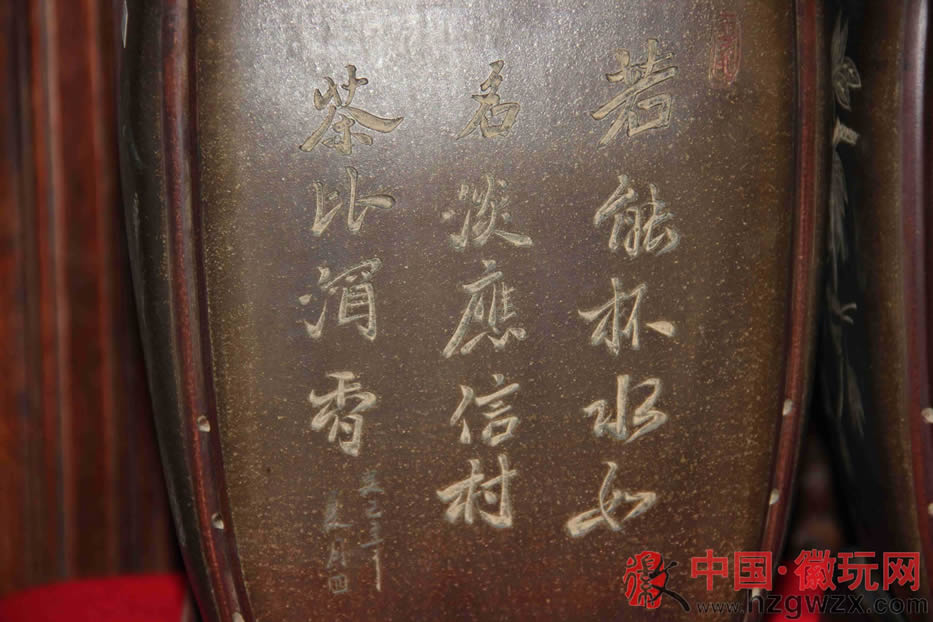 若能杯水如
名淡應信村
茶比酒香
癸巳
夏月
徽
中国·徽玩网
www.hzgwzx.com